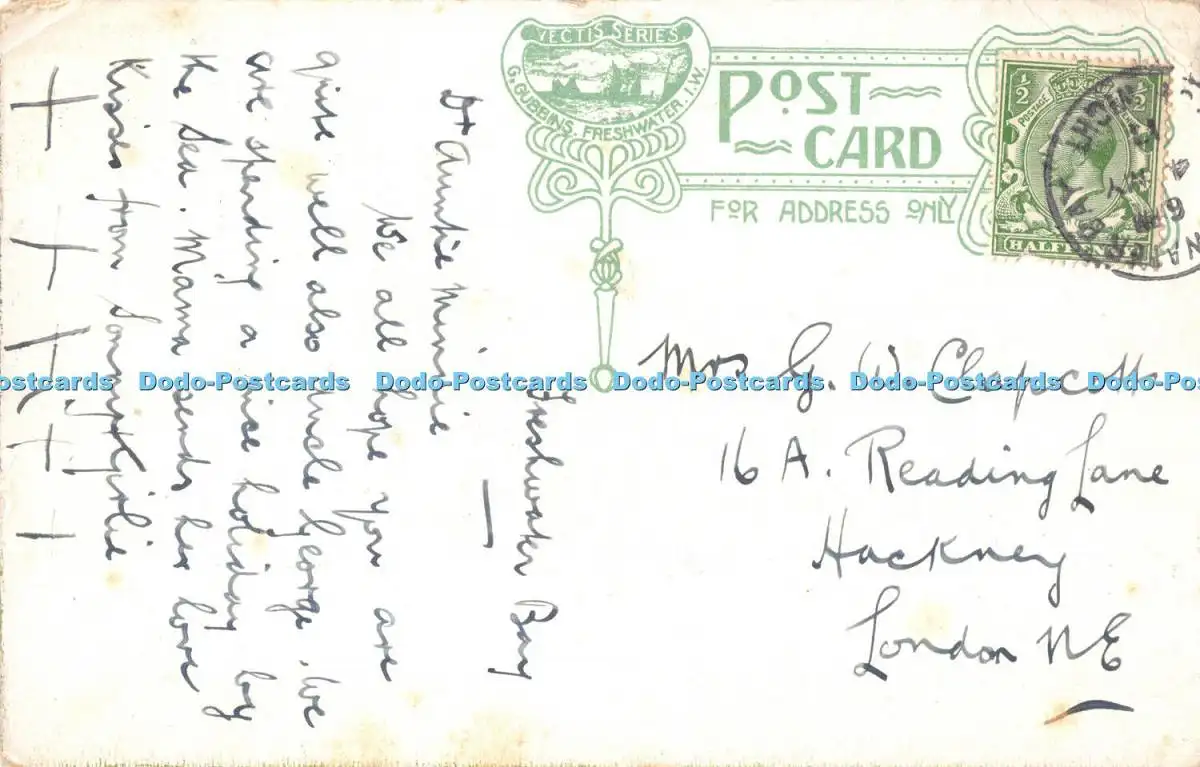 VECTIS SERIES
G. GUBBINS, FRESHWATER. I.W.
POST
CARD
FOR ADDRESS ONLY
1/2
1/2
POSTAGE
HALFPENNY
BAY
WIGHT
Freshwater Bay
Dr Auntie Minnie
We all hope you are
quite well also Uncle George. We
are spending a nice holiday by
the Sea. Mama sends her love
Kisses from Sonny & Girlie
+ + + + +
Mrs G. W Clapcott
16 A. Reading Lane
Hackney
London NE
Dodo-Postcards Dodo-Postcards Dodo-Postcards Dodo-Postcards Dodo-Postcards